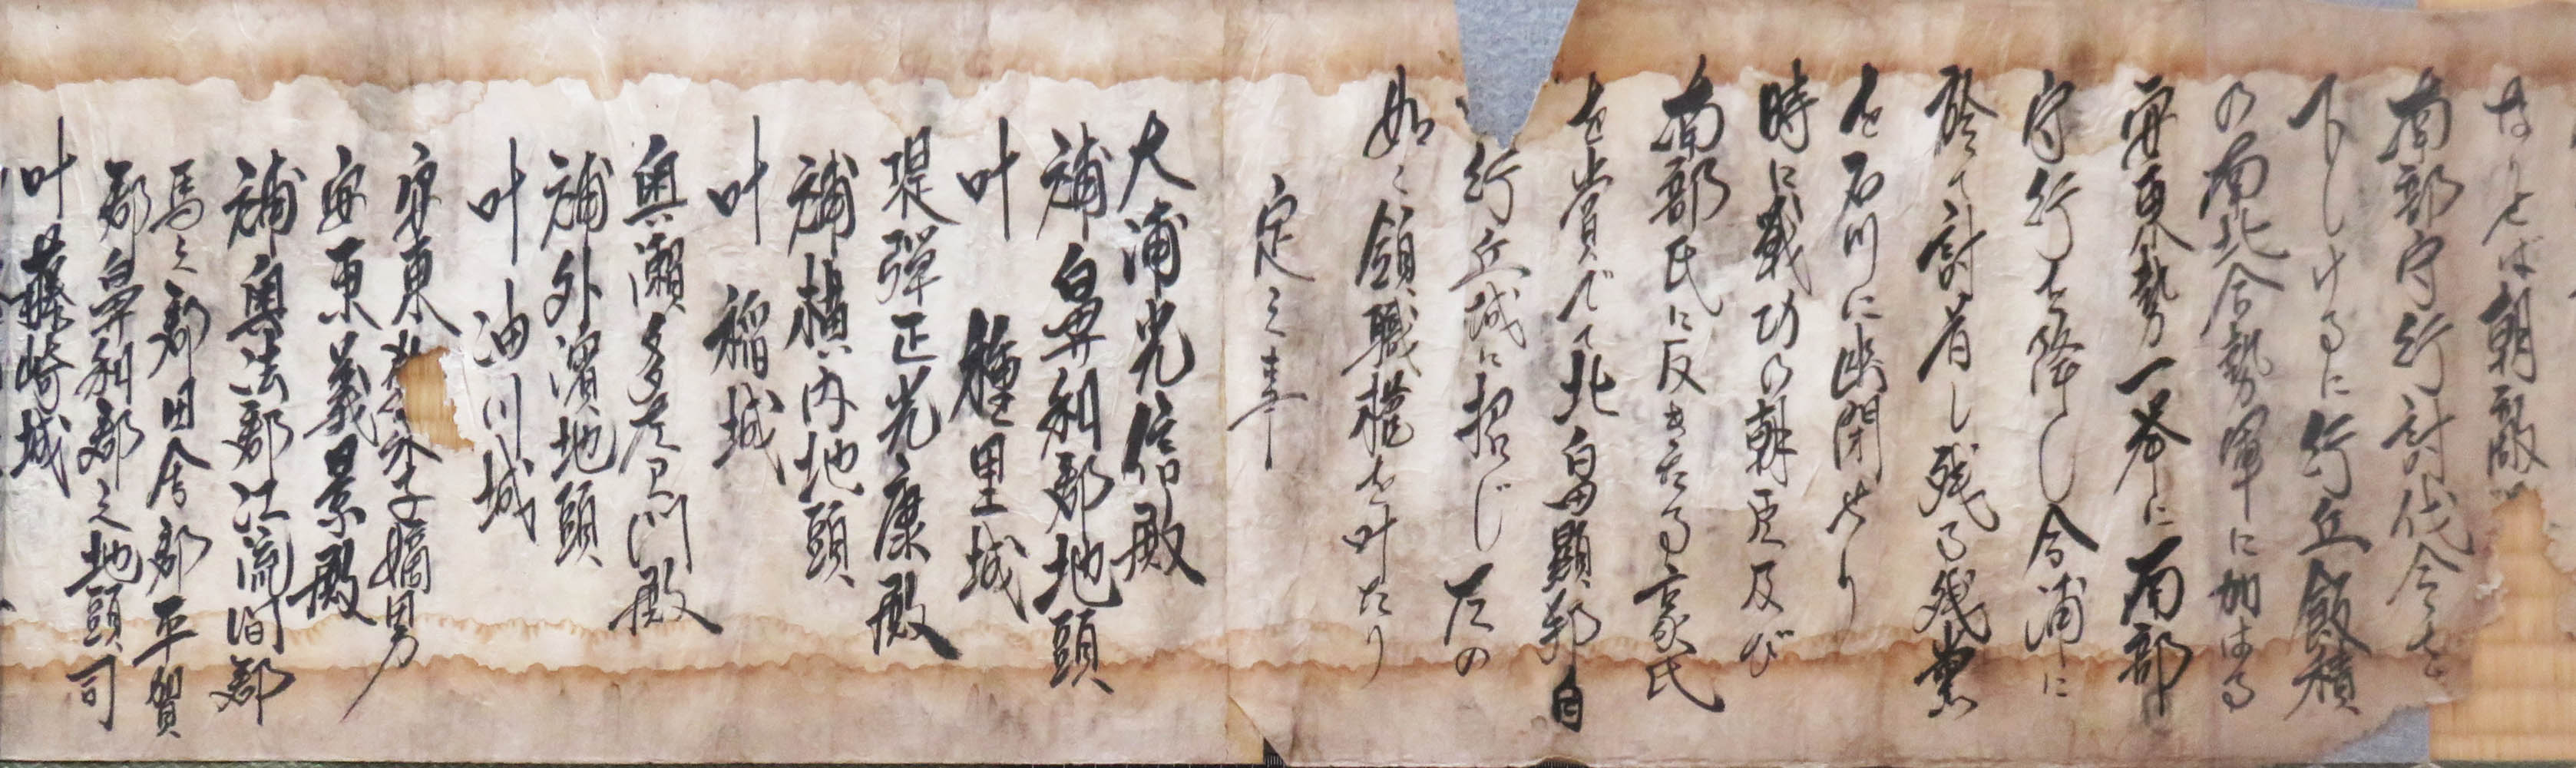 なりせば朝敵
南部守行討伐令を
下しけるに行丘飯積
の南北合勢軍に加はる
安東勢一挙に南部
守行を降し今浦に
於て討首し残る残党
を石川に幽閉せり
時に戦功の朝臣及び
南部氏に反きたる豪氏
を賞でて北畠顕邦自
行丘城に招じ左の
如く領職権を叶たり
定之事
大浦光信殿
補鼻和郡地頭
叶 種里城
堤弾正光康殿
補横内地頭
叶 稲城
奥瀬多左ヱ門殿
補外濱地頭
叶油川城
安東 嫡男
安東義景殿
補奥法郡江流間郡
馬之郡田舎郡平賀
郡鼻和郡之地頭司
叶 藤崎城